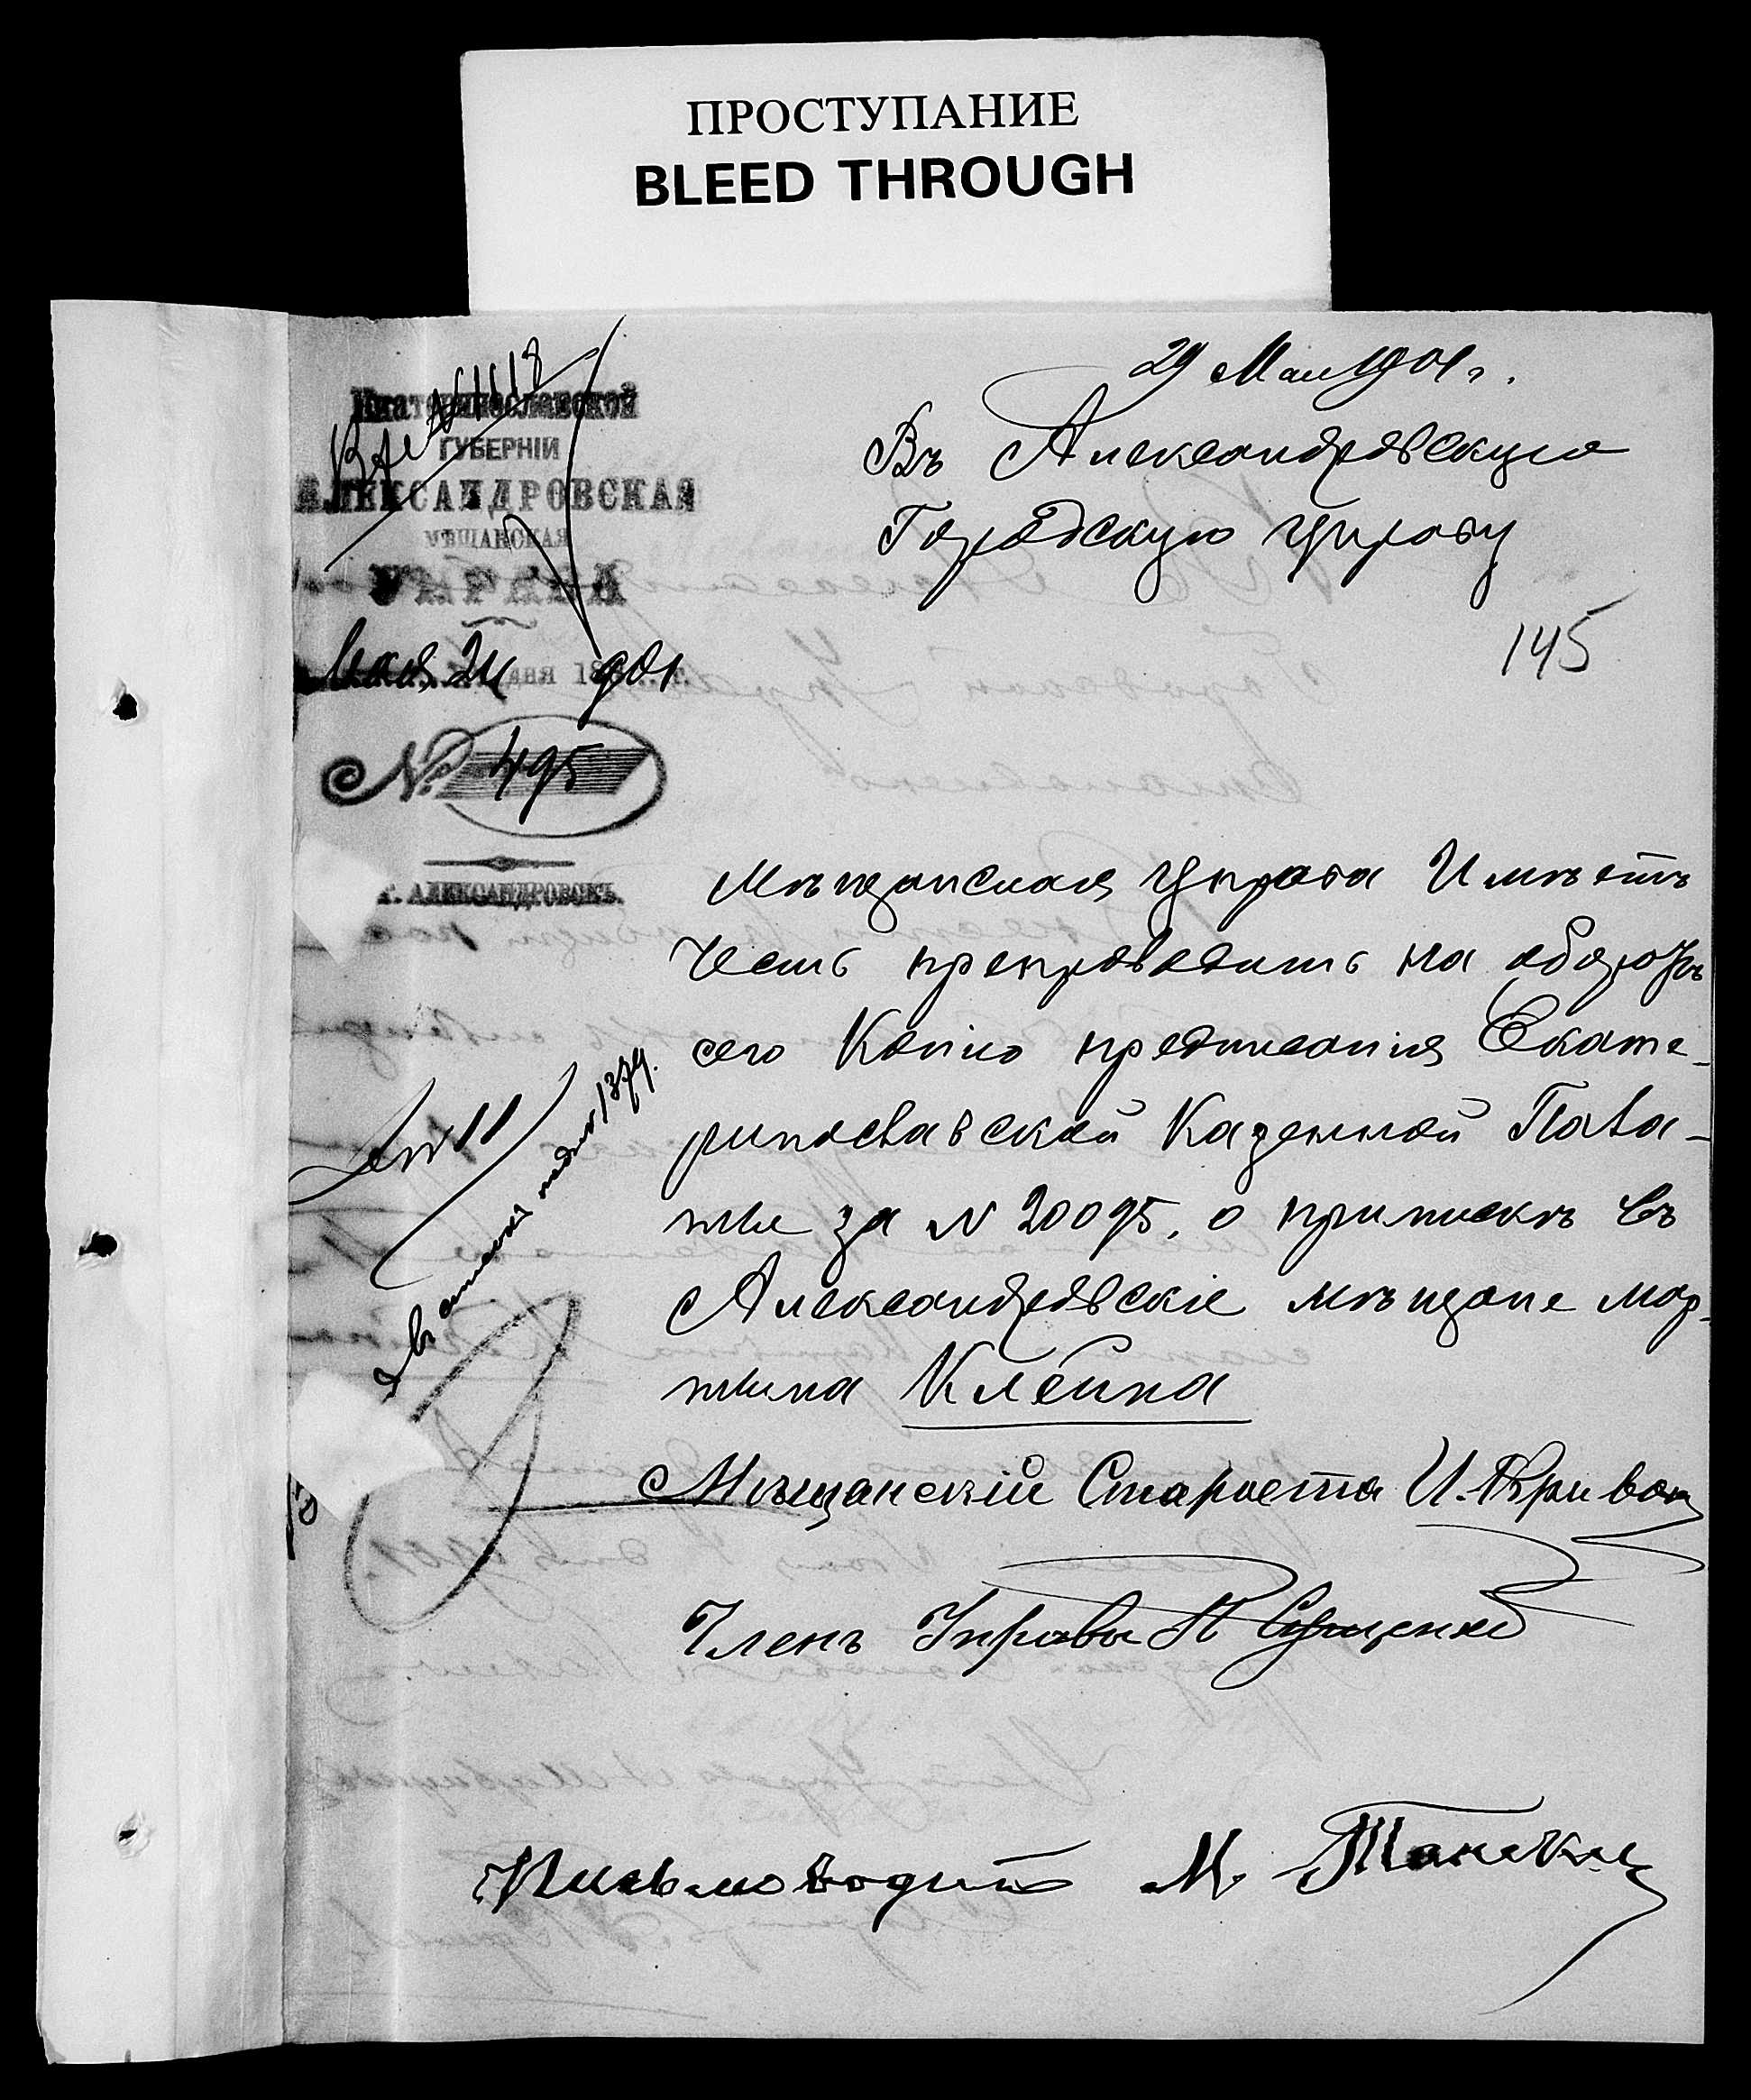 ПРОСТУПАНИЕ
BLEED THROUGH
29 Мая 1901 г.
Екатеринославской
ГУБЕРНІИ
АЛЕКСАНДРОВСКАЯ
МѢЩАНСКАЯ
УПРАВА
Мая 24 дня 1901 г.
№ 495
Г. АЛЕКСАНДРОВСКЪ.
Въ Александровскую
Городскую Управу
145
Мѣщанская Управа Имѣетъ
честь препроводить на оборотѣ
сего Копію предписанія Екате-
ринославской Казенной Пала-
ты за № 20095, о припискѣ въ
Александровскіе мѣщане Мар-
тына Клейна
Мѣщанскій Староста И.
Членъ Управы
Письмоводит М.